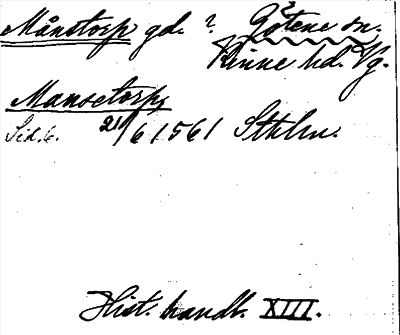 Månstorp gd. ? Götene sn.
Kinne hd. Vg.
Mansetorp
Sid. 6. 21/6 1561 Sthlm.
Hist. handl. XIII.